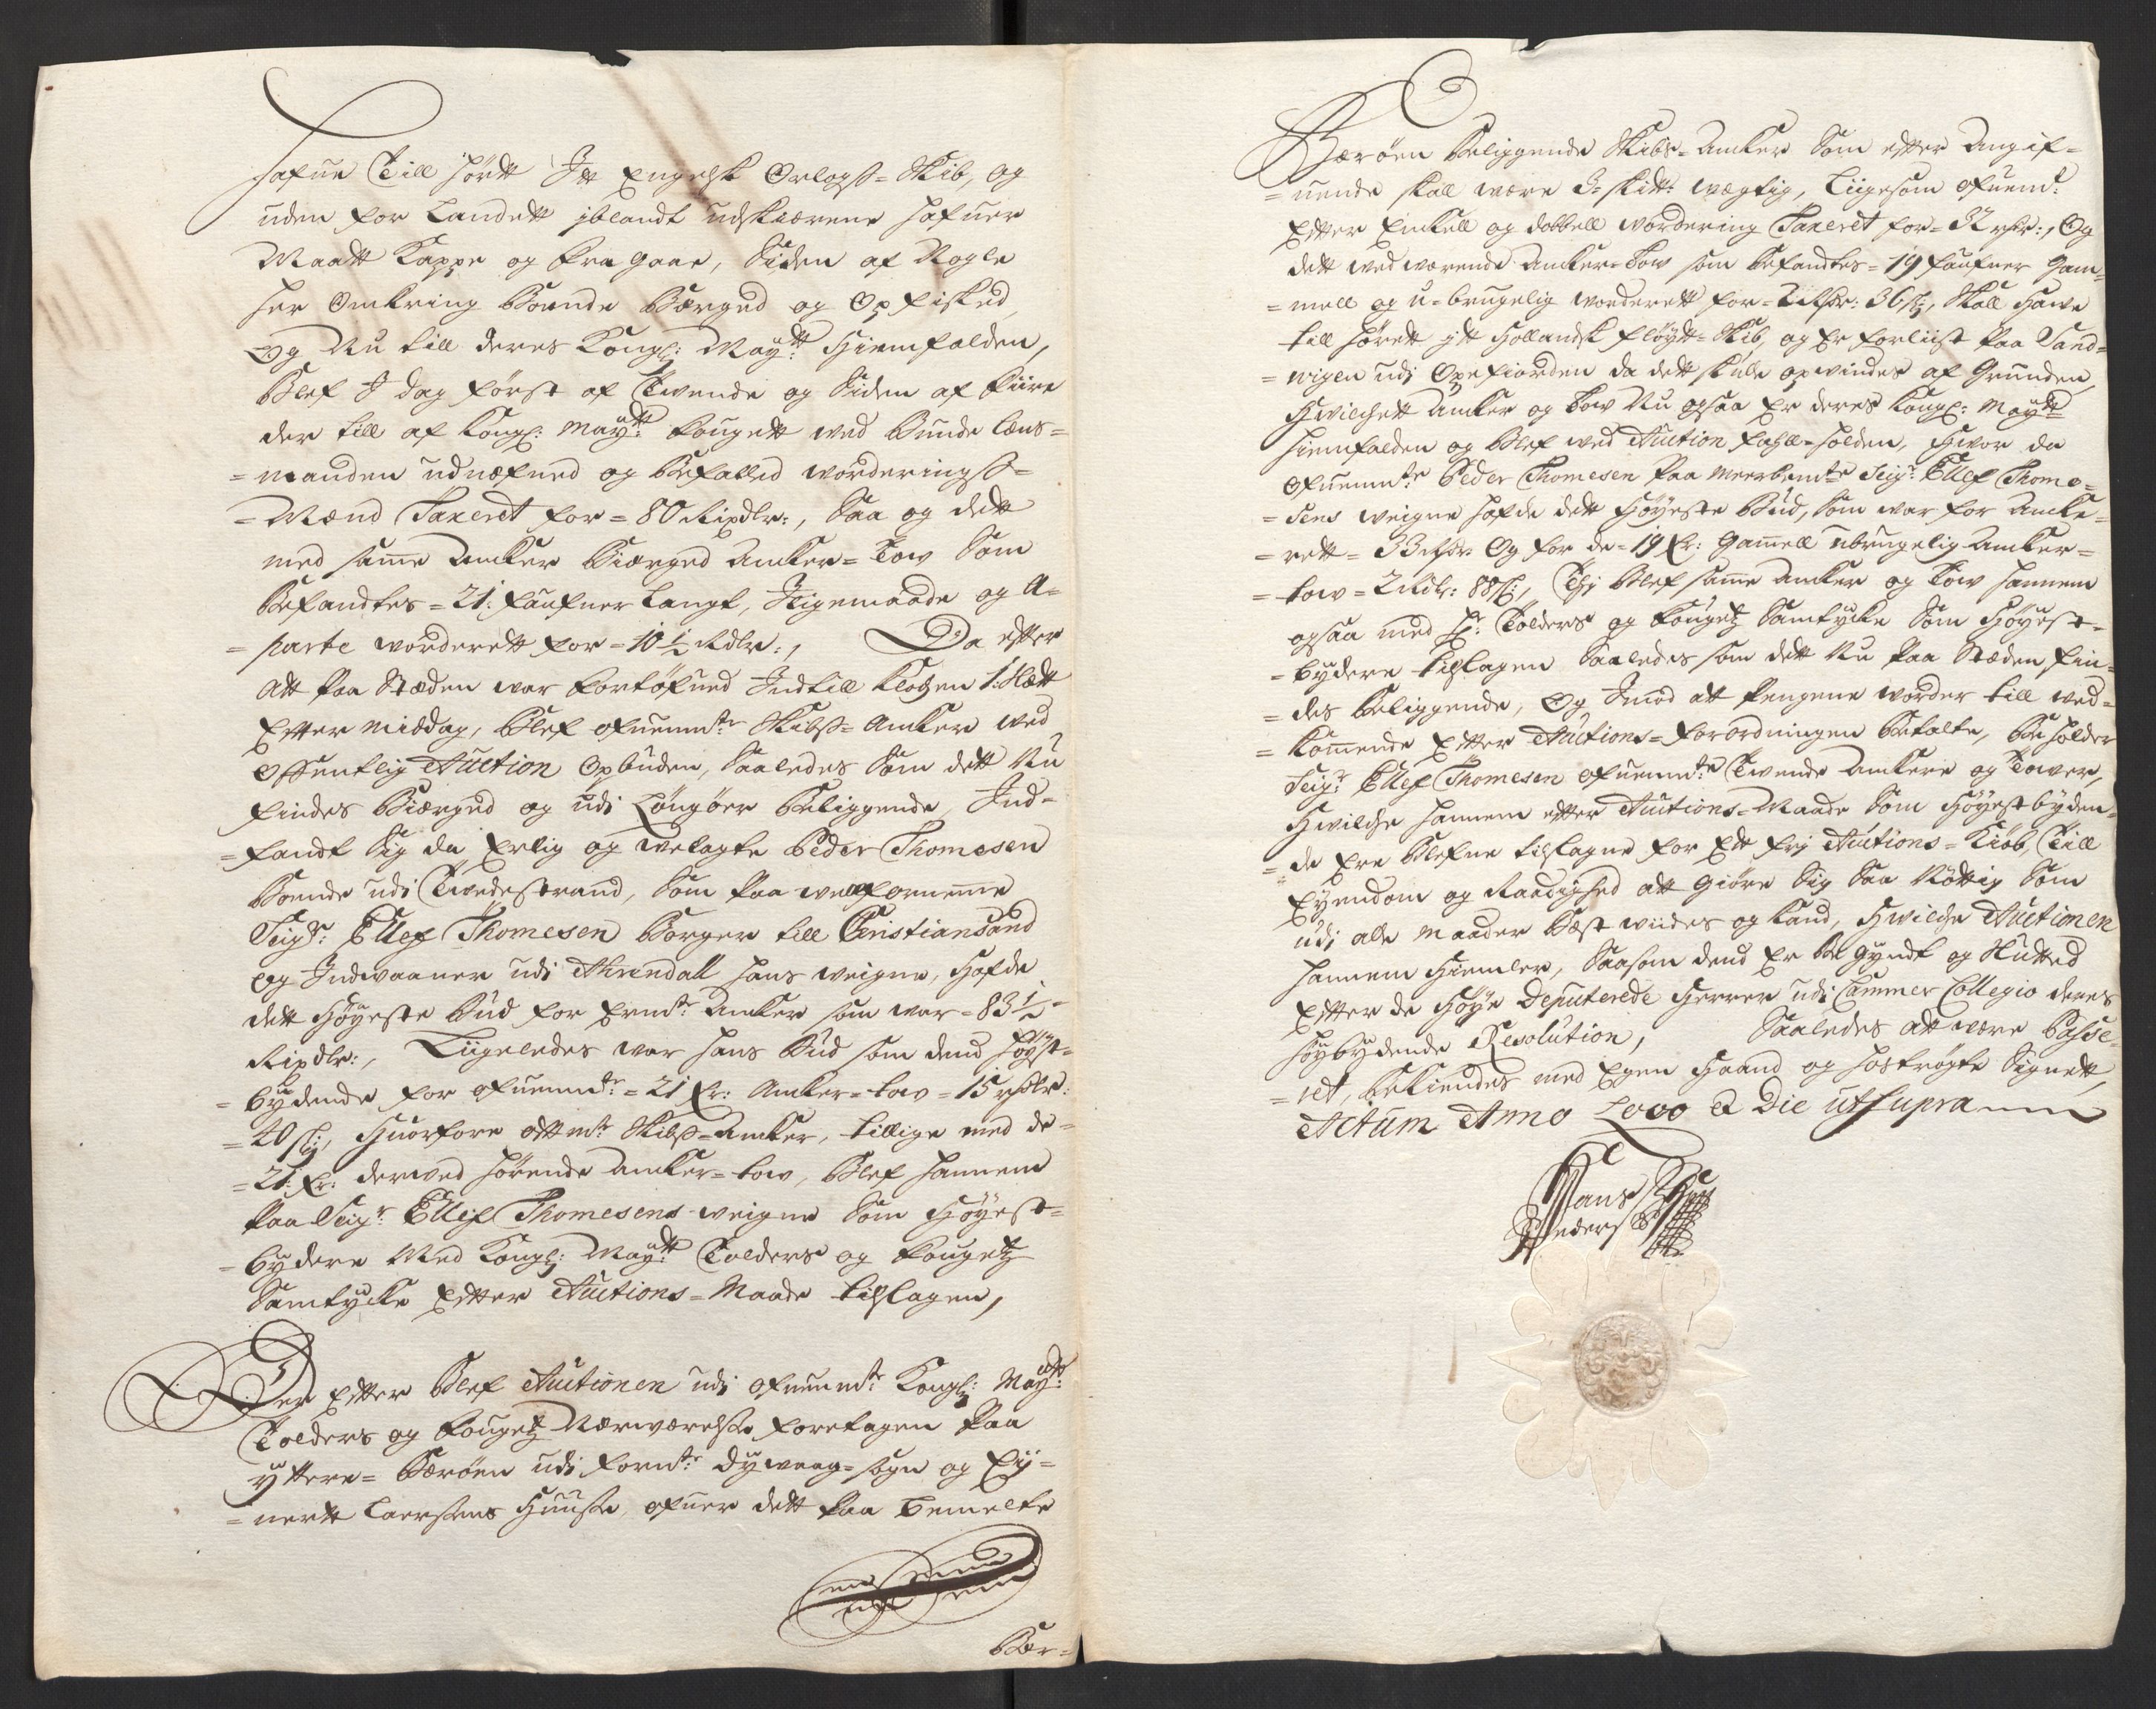 hafue Till hørtt Itt Engelsk Orlogss-Skib, og
uden for Landett iblandt udskiærene hafuer
Maatt Kappe og fra gaae, Siden af Nogle
her Omkring Boende Bærged og Opfisked,
Og Nu till deres Kongl: Maytt: Hiemfalden,
Blef I dag først af Twende og Siden af fiire
der till af Kongl: Maytt: fougett ved Bunde Læns-
-manden udnefned og Befalled worderingss-
-Mænd Taxeret for=80 Rixdlr:, Saa og dett
med samme Ancker Biærged Ancker=Tow Som
Befandtes=21. faufner Langt, Iligemaade og A-
-parte worderett for=10½ Rdlr:, Da efter
Att Paa Stæden war fortøfued Indtill Klochen 1. Slett
Efter middag, Blef ofuenmte: Skibss=Ancker wed
Offentlig Auction Opbuden, Saaledes Som dett Nu
findes Biærged og udi Løngøer Beliggende, Ind-
-fandt Sig da Erlig og welagte Peder Thomesen
Boende udi Twedestrand, Som Paa welfornemme
Seigr: Ellef Thomesen Borger till Christiansand
og Indwaaner udi Ahrendall hans weigne, Hafde
dett Høyeste Bud for Ermte: Ancker som war=83½
Rixdlr:, Liigeledes war hans Bud som dend Høyst-
-bydende for ofuenmte:=21 fr: Ancker=tow=15 rixdlr:
=20 sk:, Huorfore attmte: Skibss=Ancker, tillige med de-
=21. fr: derwed hørende Ancker=tow, Blef hannem
Paa Seigr: Ellef Thomesens weigne Som Høyest-
-bydere Med Kongl: Maytt: Tolders og fougetz
Samtycke Efter Auctions=Maade tilslagen,
Der Efter Blef Auctionen udi ofuenmte: Kongl: Maytt:
Tolders og fougetz Nærwærelsse foretagen Paa
yttere=Børøen udi formte: dywaag=sogn og Ey-
-nertt Laerssens Huusse, ofuer dett Paa bemelte
Bør-
Børøen Beliggende Skibs=Ancker Som efter Angif-
-uende skall være 3=skitt: wægtig, Liigesom ofuent:
Efter Enckell og dobbell wordering Taxeret for=32 rdr:, Og
dett wed wærende Ancker=Tow som Befandtes=19 faufner Gam-
-mell og u=brugelig worderett for=2 Rdr: 36 sk:, Skall Hawe
till hørett itt Hollandsk fløytt=Skib, og Er forliist Paa Sand-
-wigen udi Oxefiorden da dett skulle opwindes af Grunden,
Hwilchett Ancker og Tow Nu ogsaa Er deres Kongl: Maytt:
Hiemfalden og Blef wed Auction fahll=holden, Hwor da
Ofuenmte: Peder Thomesen Paa meerbemte Seigr: Ellef Thome-
-sens weigne hafde dett Høyeste Bud, som war for Ancke-
-rett=33 Rdr: Og for de=19 fr: Gamell ubrugelig Ancker-
-tow=2 Rdlr: 88 sk:, Thj Blef samme Ancker og Tow hannem
ogsaa med Hr: Tolders og fougetz Samtycke Som Høyest-
-bydere tilslagen Saaledes som dett Nu Paa Stæden fin-
-des Beliggende, Og Imod att Pengene worder till wed-
-kommende Efter Auctions=forordningen Betalte, Beholder
Seigr: Ellef Thomesen ofuenmte: Twende Anckere og Tower,
Hwilche hannem efter Auctions=Maade Som Høyestbyden-
-de Ere Blefne tilslagne for Ett frj Auctions=Kiøb, Till
Eyendom og Raadighed att Giøre Sig Saa Nøttig Som
udi alle maader Best wiides og kand, Hwilche Auctionen
hannem Hiemler, Saasom dend Er Begyndt og Sluttet
Efter de Høye Deputerede Herrer udi Cammer Collegio deres
høybydende Resolution, Saaledes att være Passe-
-ret, bekiendes med Egen Haand og hostrøgte Signett,
Actum Anno Loco & Die ut Supra
Hans
Pedersen